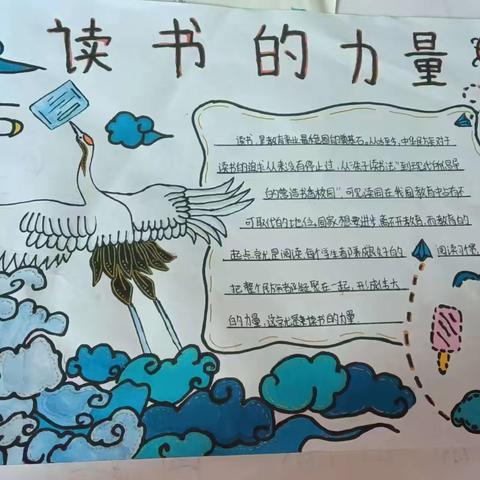 读书的力量
读书,是教育事业最稳固的奠基石。从古至今,中华民族对于
读书的追求从来没有停止过,从"朱子读书法"到现代所倡导
的"营造书香校园",可见读图在我国教育中占有不
可取代的地位。国家想要进步离不开教育,而教育的
起点就是阅读,每个学生都养成好的 阅读习惯
把整个民族都凝聚在一起,形成强大
的力量,这就是读书的力量